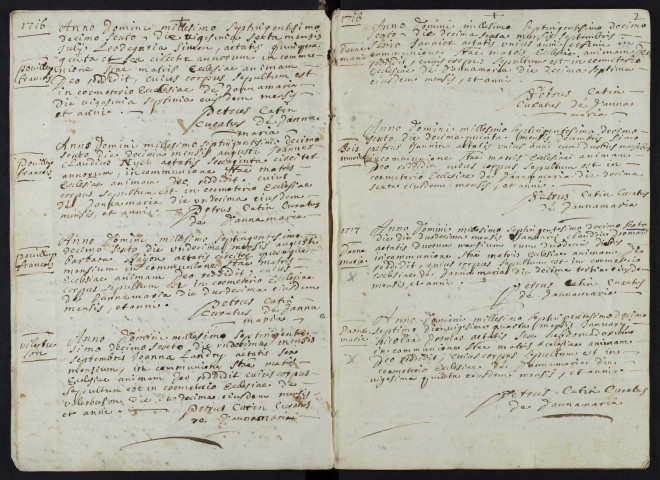 1716
Anno Domini millesimo septingentesimo
decimo sexto, die vigesima sexta mensis
Julij Leodegaria aetatis quinqua
ginta et sex circiter annorum in commu
nione Stae matris Ecclesiae animam
Deo reddidit, cuius corpus sepultum est
in coemeterio Ecclesiae de Dannamaria
die vigesima septima eiusdem mensis
et anni.
Petrus Catin
Curatus de Danna
maria
Anno Domini millesimo septingentesimo decimo
sexto die decima mensis augusti
Claudius aetatis sexaginta circiter
annorum, in communione Stae matris
Ecclesiae animam Deo reddidit, cuius
corpus sepultum est in coemeterio Ecclesiae
de Dannamaria die undecima eiusdem
mensis, et anni.
Petrus Catin Curatus
de Dannamaria
Anno Domini millesimo septingentesimo
decimo sexto, die undecima mensis augusti
Barbara aetatis circiter
mensium in communione Stae matris
Ecclesiae animam Deo reddidit, cuius
corpus sepultum est in coemeterio Ecclesiae
de Dannamaria die duodecima eiusdem
mensis, et anni.
Petrus Catin
Curatus de Danna
maria
Anno Domini millesimo septingente
simo decimo sexto die mensis
septembris Joanna Landry aetatis sex
mensium, in communione Stae matris
Ecclesiae animam Deo reddidit cuius corpus
sepultum est in coemeterio Ecclesiae de
die duodecima eiusdem mensis
et anni.
Petrus Catin Curatus
de Dannamaria
1716
2
Danna
marie
Anno Domini millesimo septingentesimo decimo
sexto die decima sexta mensis septembris
aetatis unius anni in
communione Stae matris Ecclesiae animam Deo
reddidit, cuius corpus sepultum est in coemeterio
Ecclesiae de Dannamaria die decima septima
eiusdem mensis, et anni.
Petrus Catin
Curatus de Danna
maria
Anno Domini millesimo septingentesimo decimo
sexto die decima quinta mensis
Petrus aetatis unius anni cum duobus mensibus
in communione Stae matris Ecclesiae animam
Deo reddidit, cuius corpus sepultum est in
coemeterio Ecclesiae de Dannamaria die decima
sexta eiusdem mensis, et anni.
Petrus Catin Curatus
de Dannamaria
1717
Danna
maria
Anno Domini millesimo septingentesimo decimo septimo
die duodecima mensis
aetatis duorum mensium cum duodecim diebus
in communione Stae matris Ecclesiae animam Deo
reddidit, cuius corpus sepultum est in coemeterio
Ecclesiae de Dannamaria die decima tertia eiusdem
mensis, et anni.
Petrus Catin Curatus
de Dannamaria
Danna
marie
Anno Domini millesimo septingentesimo decimo
septimo die vigesima quarta mensis Januarij
Nicolaus aetatis sex
in communione Stae matris Ecclesiae animam
Deo reddidit, cuius corpus sepultum est in
coemeterio Ecclesiae de Dannamaria die
vigesima quinta eiusdem mensis, et anni.
Petrus Catin Curatus
de Dannamaria